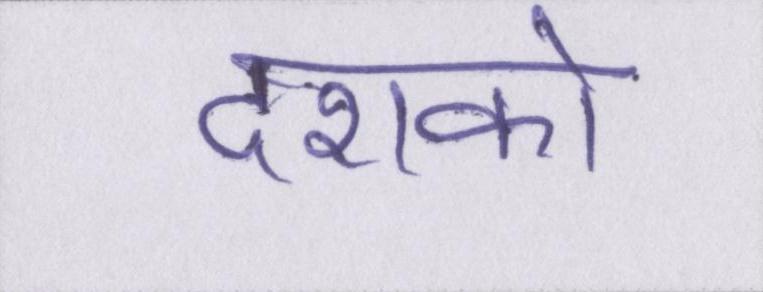 दशको